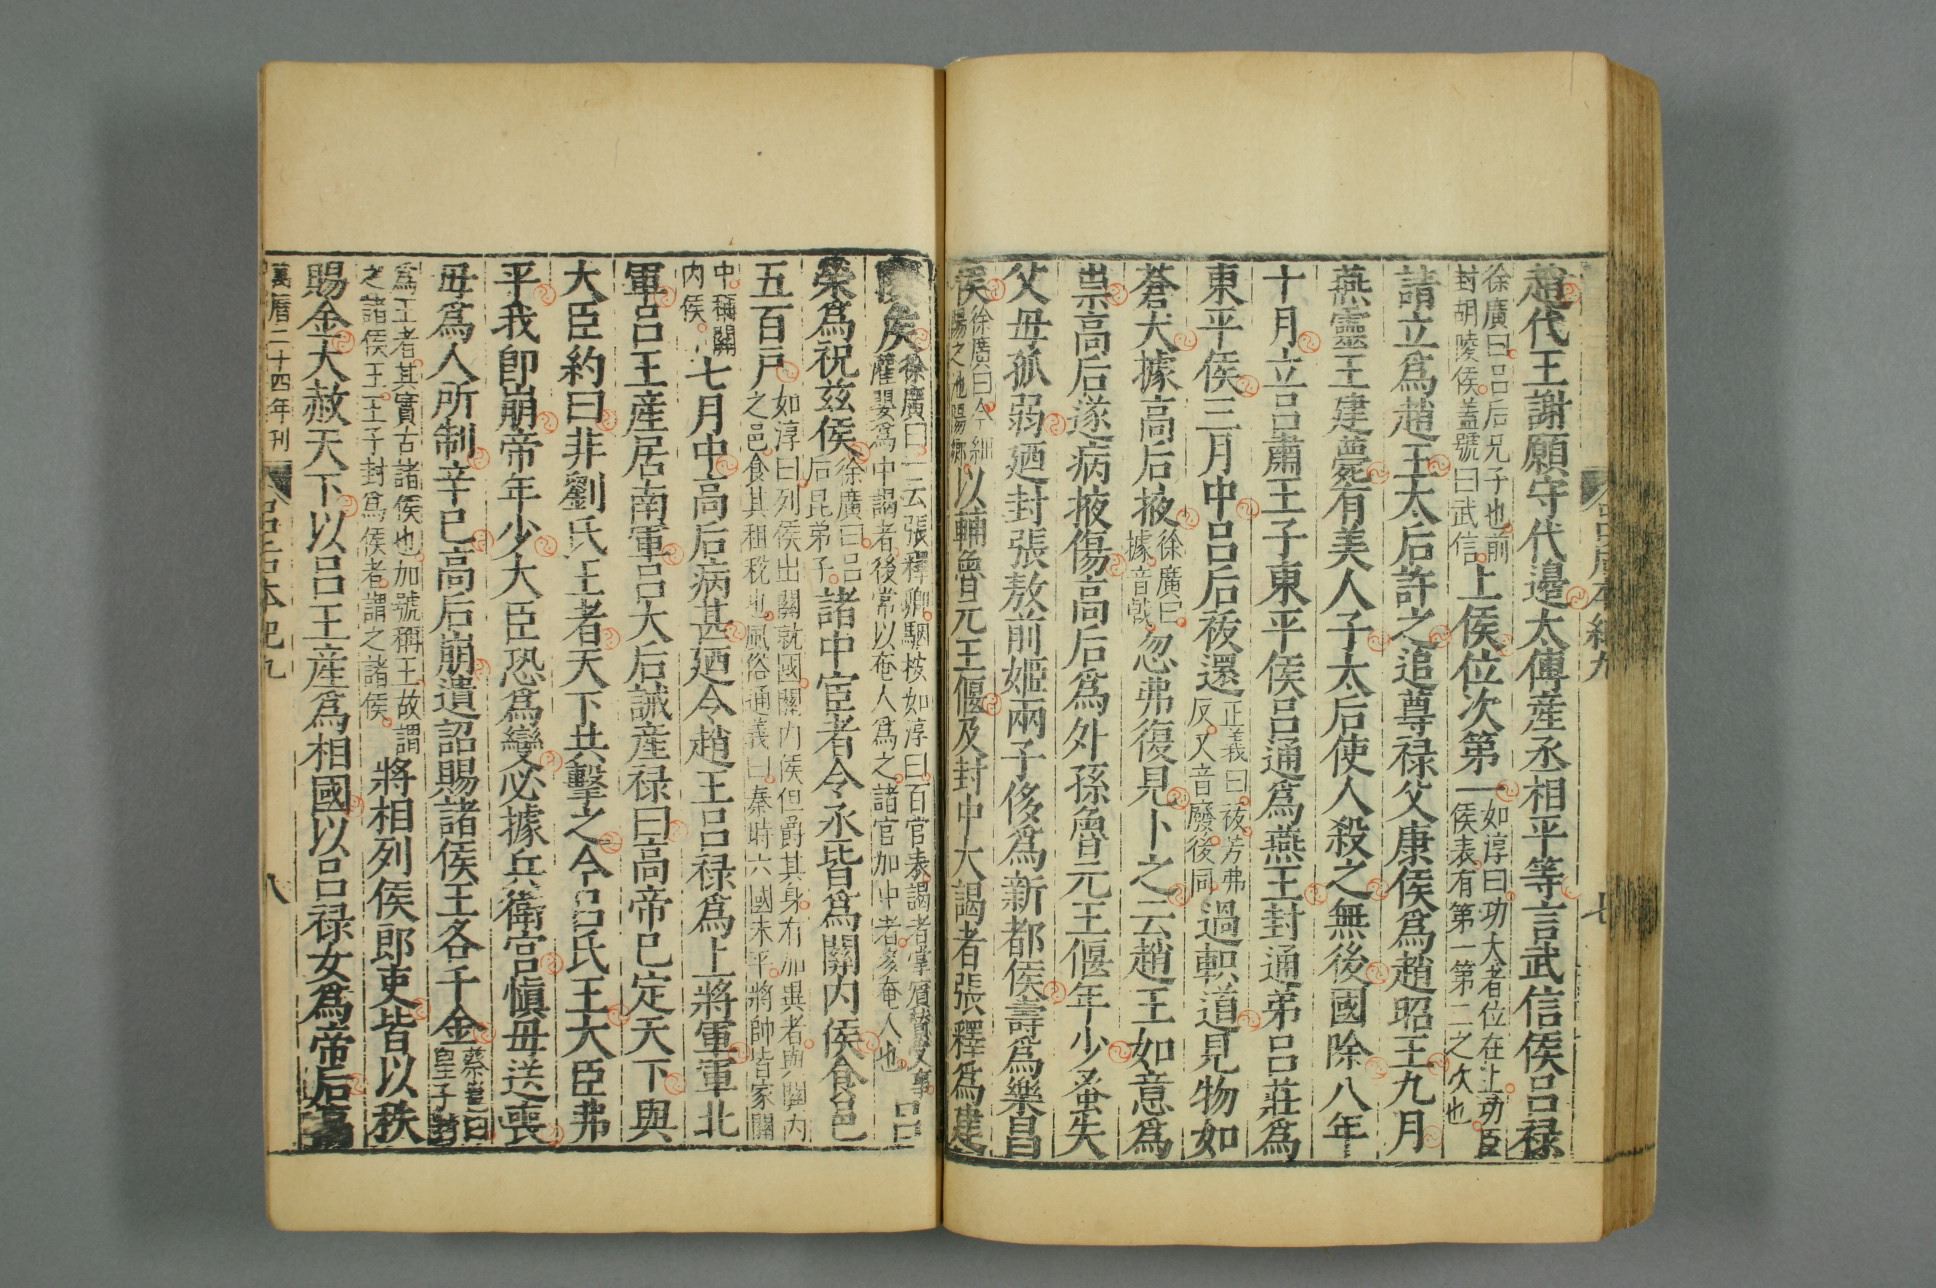 趙代王謝願守代邊太傅産丞相平等言武信侯呂禄
徐廣曰呂后兄子也前封胡陵侯蓋號曰武信上侯位次第一如淳曰功大者位在上功臣侯表有第一第二之次也
請立爲趙王太后許之追尊禄父康侯爲趙昭王九月
燕靈王建薨有美人子太后使人殺之無後國除八年
十月立呂肅王子東平侯呂通爲燕王封通弟呂莊爲
東平侯三月中呂后祓還正義曰祓芳弗反又音廢後同過軹道見物如
蒼犬據高后掖徐廣曰據音戟忽弗復見卜之云趙王如意爲
祟高后遂病掖傷高后爲外孫魯元王偃年少蚤失
父母孤弱廼封張敖前姬兩子侈爲新都侯壽爲樂昌
侯徐廣曰今細陽之池陽鄉以輔魯元王偃及封中大謁者張釋爲建
陵侯徐廣曰一云張釋卿駰桉如淳曰百官表謁者掌賓贊受事灌嬰爲中謁者後常以奄人爲之諸官加中者多奄人也呂
榮爲祝兹侯徐廣曰呂后昆弟子諸中宦者令丞皆爲關内侯食邑
五百戶如淳曰列侯出關就國關内侯但爵其身有加異者與關内之邑食其租稅也風俗通義曰秦時六國未平將帥皆家關
中稱關内侯七月中高后病甚廼令趙王呂禄爲上將軍軍北
軍呂王産居南軍呂太后誡産禄曰高帝已定天下與
大臣約曰非劉氏王者天下共擊之今呂氏王大臣弗
平我即崩帝年少大臣恐爲變必據兵衛宮慎毋送喪
毋爲人所制辛巳高后崩遺詔賜諸侯王各千金蔡邕曰皇子封
爲王者其實古諸侯也加號稱王故謂之諸侯王王子封爲侯者謂之諸侯將相列侯郎吏皆以秩
賜金大赦天下以呂王産爲相國以呂禄女爲帝后高
萬曆二十四年刊 呂后本紀九 八
呂后本紀九 七